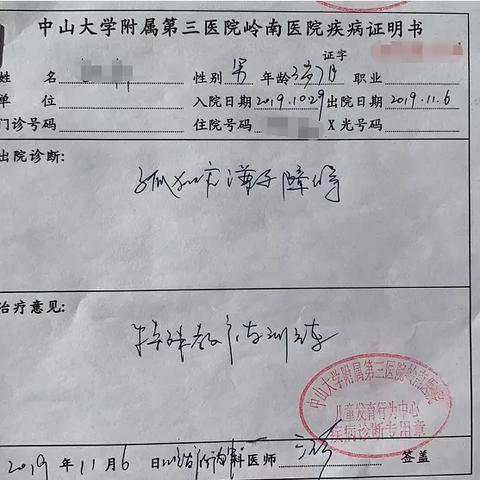 中山大学附属第三医院岭南医院疾病证明书
证字
姓 名 性别 男 年龄 3岁7月 职业
单 位 入院日期 2019.10.29 出院日期 2019.11.6
门诊号码 住院号码 X光号码
出院诊断:
孤独症谱系障碍
治疗意见:
特殊教育训练
中山大学附属第三医院岭南医院
儿童发育行为中心
疾病诊断专用章
2019 年 11 月 6 日 科医师 签盖